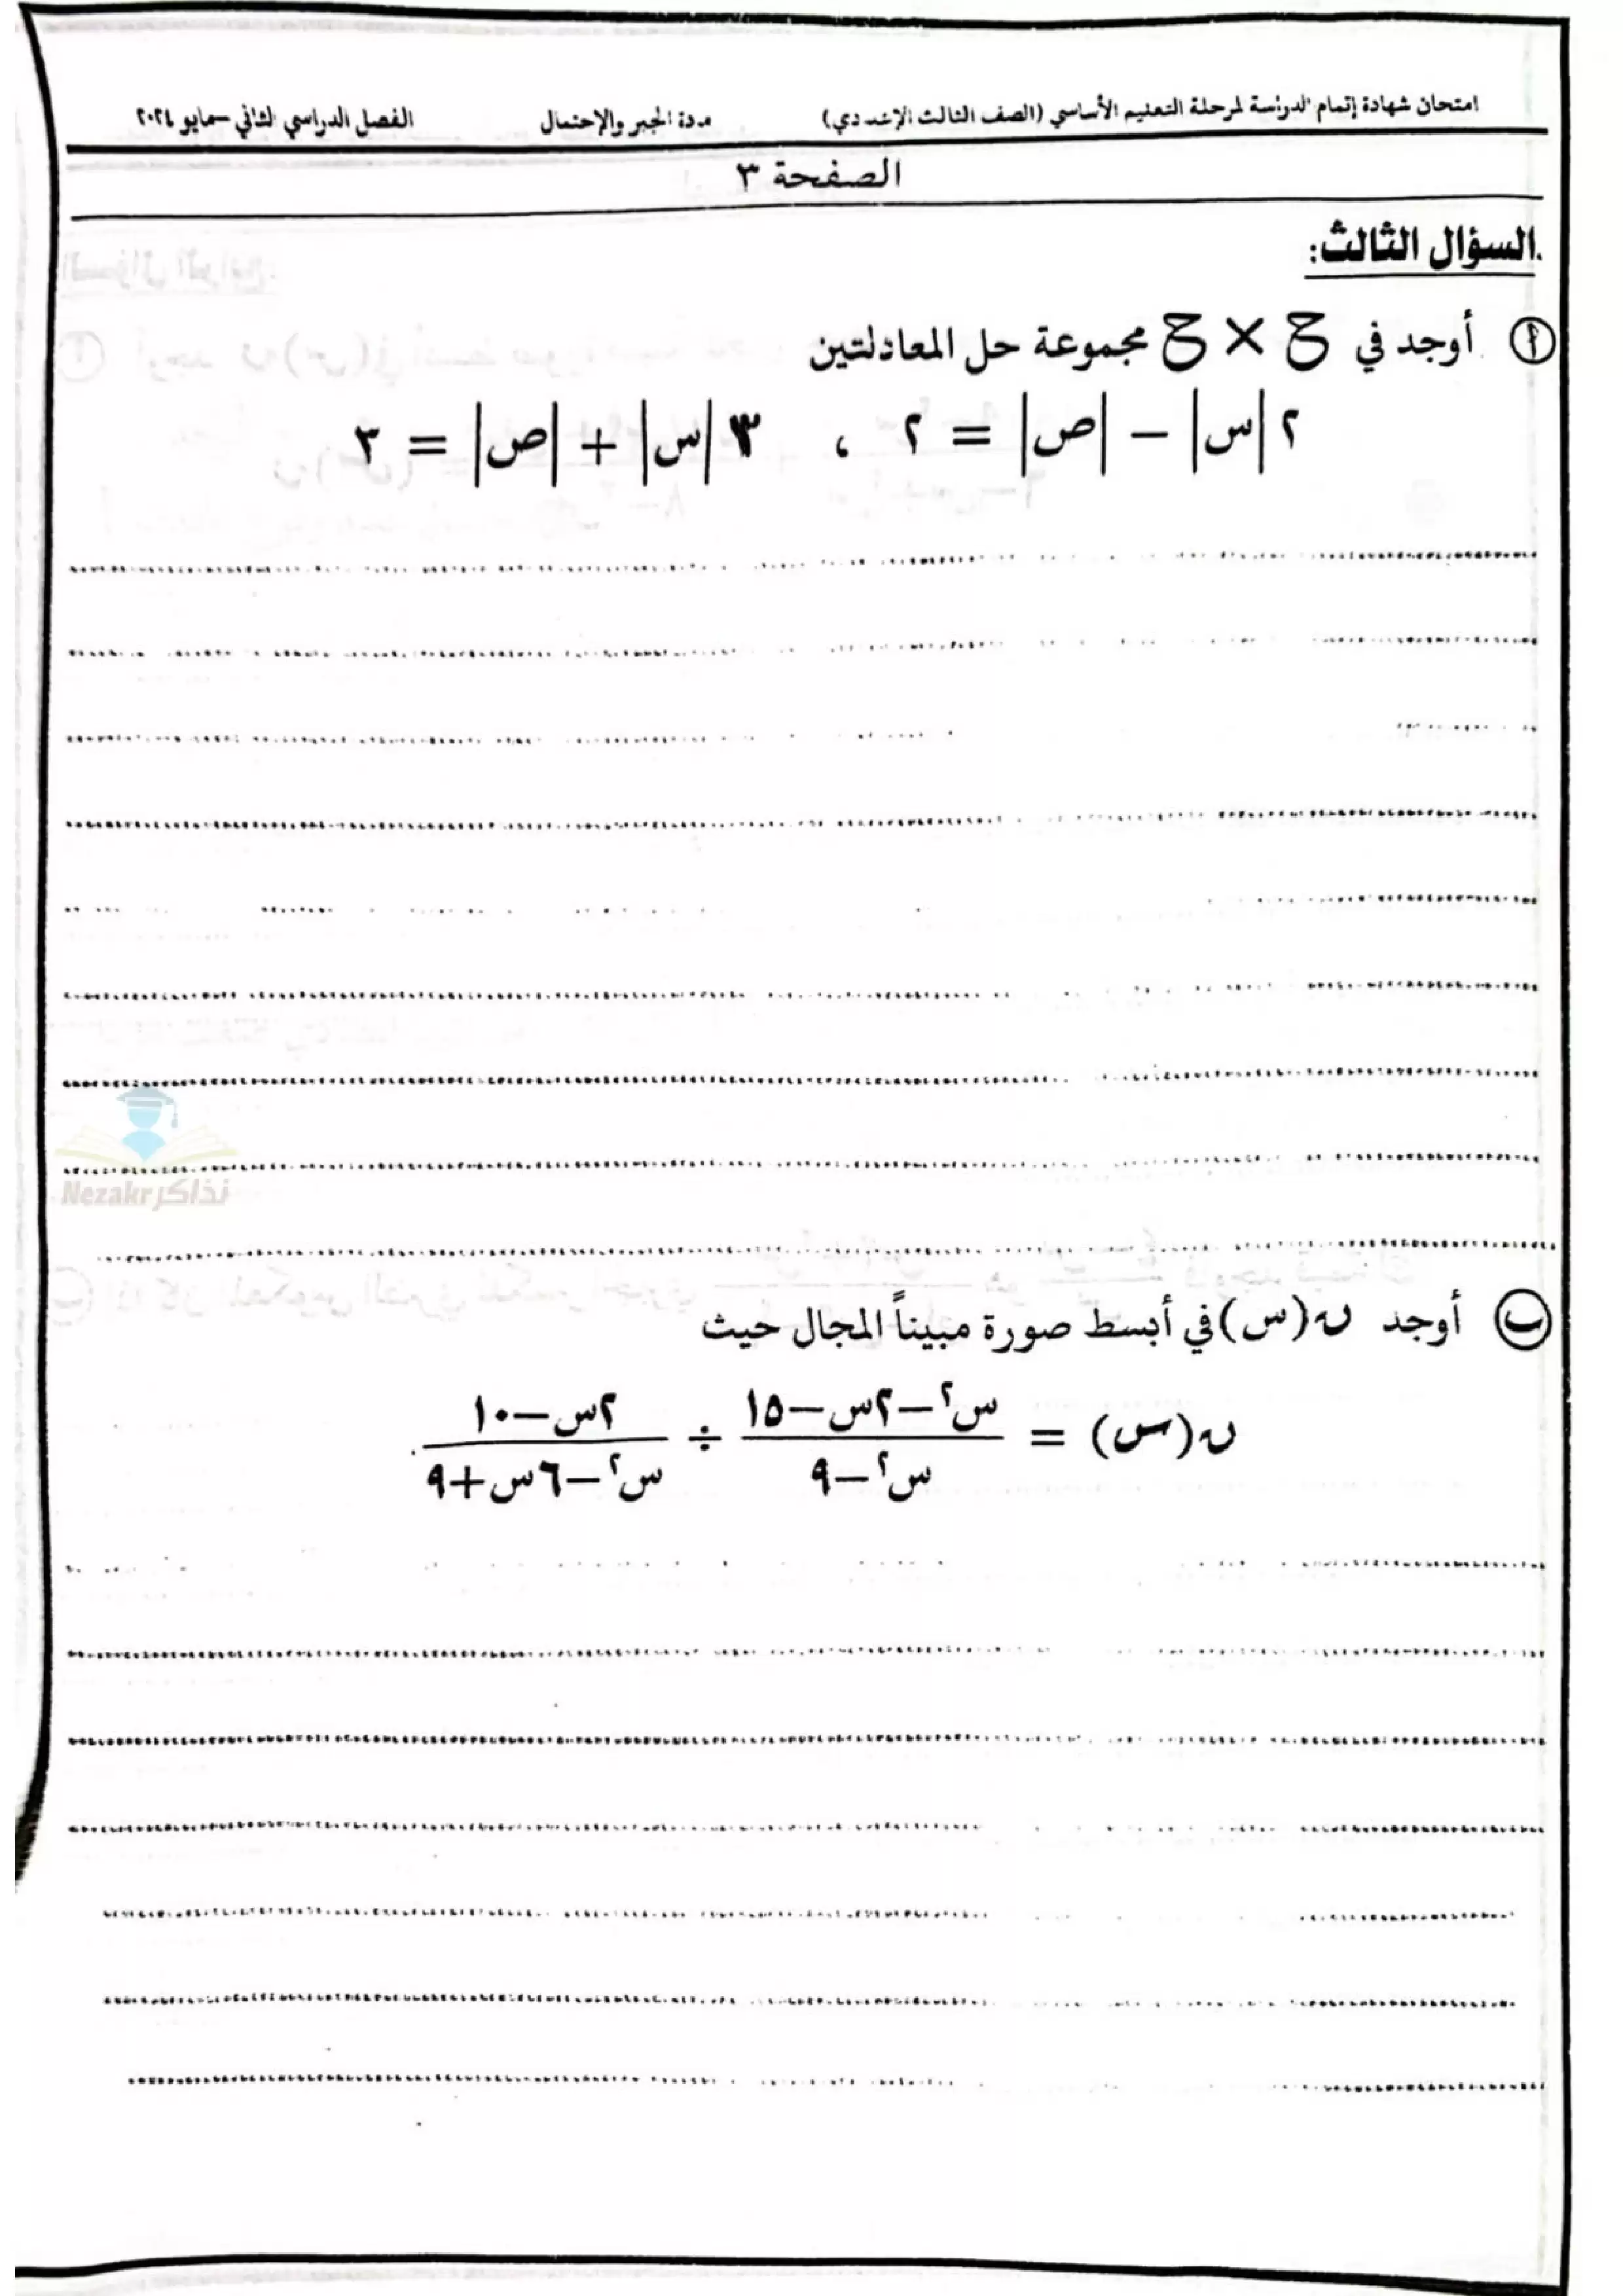 امتحان شهادة إتمام الدراسة لمرحلة التعليم الأساسي (الصف الثالث الإعدادي) مادة الجبر والإحتمال الفصل الدراسي الثاني – مايو ٢٠٢٤
الصفحة ٣
السؤال الثالث:
أ أوجد في ح × ح مجموعة حل المعادلتين
٢|س| − |ص| = ٢ ، ٣|س| + |ص| = ٣
ب أوجد ن(س) في أبسط صورة مبيناً المجال حيث
ن(س) = (س٢ − ٢س − ١٥)/(س٢ − ٩) ÷ (٢س − ١٠)/(س٢ − ٦س + ٩)
Nezakr نذاكر